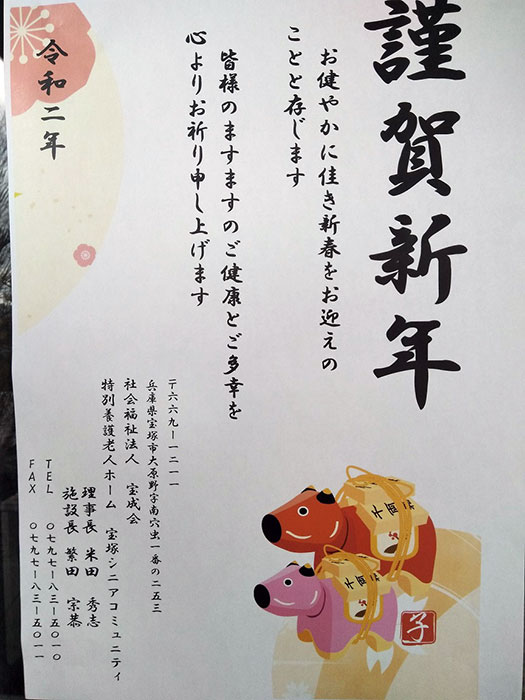 謹賀新年
お健やかに佳き新春をお迎えの
ことと存じます
皆様のますますのご健康とご多幸を
心よりお祈り申し上げます
令和二年
〒六六九ー一二一一
兵庫県宝塚市大原野字南穴虫一番の二五三
社会福祉法人 宝成会
特別養護老人ホーム 宝塚シニアコミュニティ
理事長 米田 秀志
施設長 繁田 宗恭
TEL 〇七九七ー八三ー五〇一〇
FAX 〇七九七ー八三ー五〇一一
子